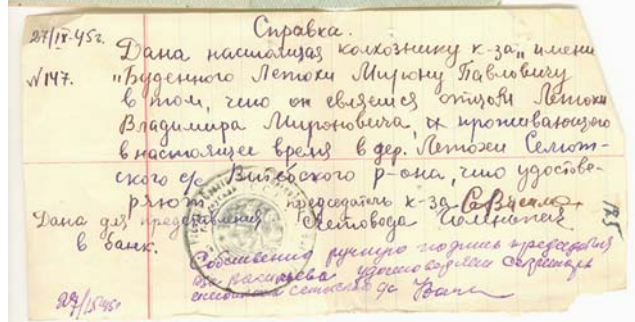 Справка.
27/IX-45г.
Дана настоящая колхознику к-за „имени
№147. "Буденного Летохи Мирону Павловичу
в том, что он является отцом Летохи
Владимира Мироновича, и проживающего
в настоящее время в дер. Летохи Селют-
ского с/с Витебского р-она, что удостове-
ряют председатель к-за
Дана для представления Счетовода
в банк.
Собственно ручную подпись председателя
удостоверяем секретарь
27/IX 45г